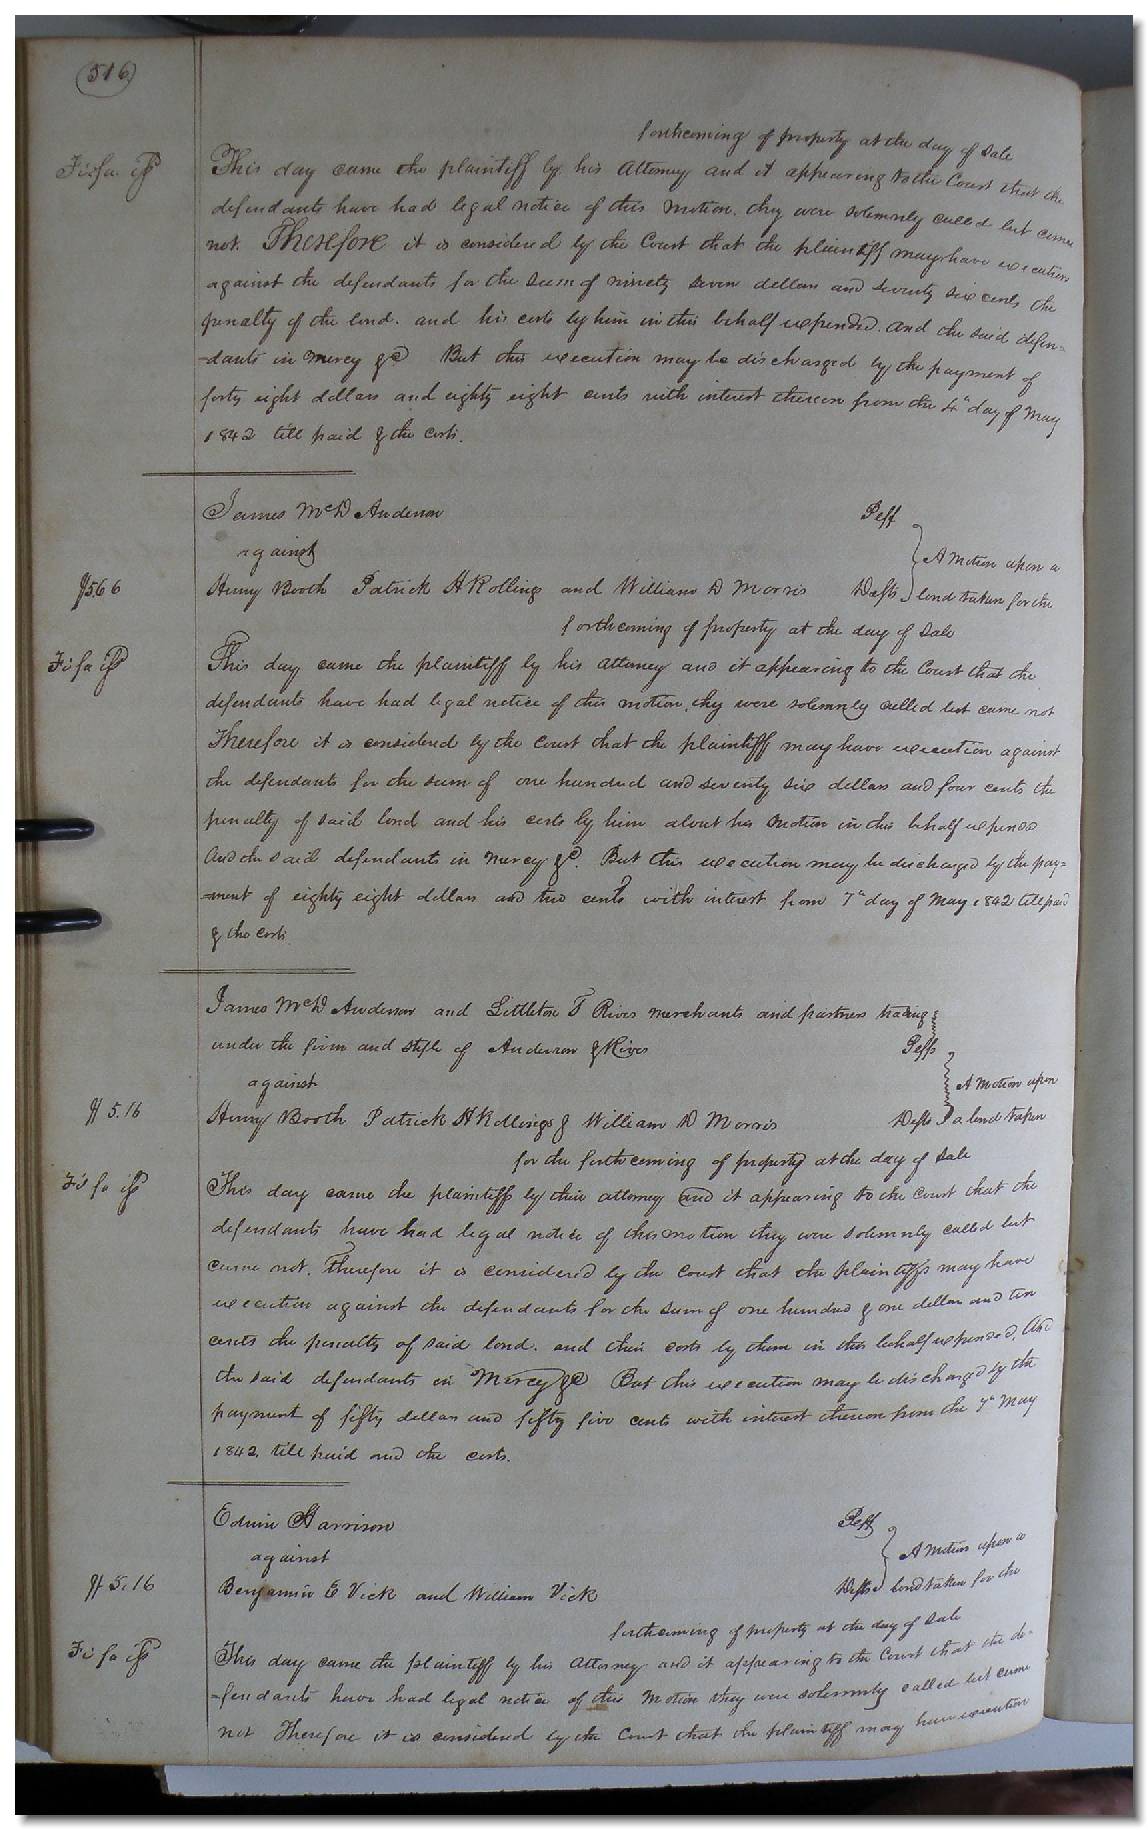 516
forthcoming of property at the day of Sale
Fi fa
This day came the plaintiff by his Attorney and it appearing to the Court that the
defendants have had legal notice of this motion. they were solemnly called but came
not. Therefore it is considered by the Court that the plaintiff may have execution
against the defendants for the sum of ninety seven dollars and seventy six cents the
penalty of the bond. and his costs by him in this behalf expended. And the said defen=
=dants in Mercy &c But this execution may be discharged by the payment of
forty eight dollars and eighty eight cents with interest thereon from the 4th day of May
1842 till paid & the costs.
James McD Anderson Peff
against
A Motion upon a
Henry Booth Patrick H Rollings and William D Morris Defts bond taken for the
forthcoming of property at the day of Sale
Fi fa
This day came the plaintiff by his attorney and it appearing to the Court that the
defendants have had legal notice of this motion, they were solemnly called but came not
Therefore it is considered by the Court that the plaintiff may have execution against
the defendants for the sum of one hundred and seventy six dollars and four cents the
penalty of said bond and his costs by him about his Motion in this behalf expended
And the said defendants in Mercy &c. But this execution may be discharged by the pay=
=ment of eighty eight dollars and two cents with interest from 7th day of May 1842 till paid
& the costs
James McD Anderson and Littleton T Rives merchants and partners trading
under the firm and style of Anderson & Rives Peffs
against
A Motion upon
$ 5.16
Henry Booth Patrick H Rollings & William D Morris Defts a bond taken
for the forthcoming of property at the day of Sale
Fi fa
This day came the plaintiffs by their attorney and it appearing to the Court that the
defendants have had legal notice of this motion they were solemnly called but
came not. Therefore it is considered by the Court that the plaintiffs may have
execution against the defendants for the sum of one hundred & one dollar and ten
cents the penalty of said bond. and their costs by them in this behalf expended. And
the said defendants in Mercy &c But this execution may be discharged by the
payment of fifty dollars and fifty five cents with interest thereon from the 7th May
1842. till paid and the costs.
Edwin Harrison Peff
against
A Motion upon a
$ 5.16
Benjamin E Vick and William Vick Defts bond taken for the
forthcoming of property at the day of Sale
Fi fa
This day came the plaintiff by his Attorney and it appearing to the Court that the de-
-fendants have had legal notice of this Motion they were solemnly called but came
not Therefore it is considered by the Court that the plaintiff may have execution